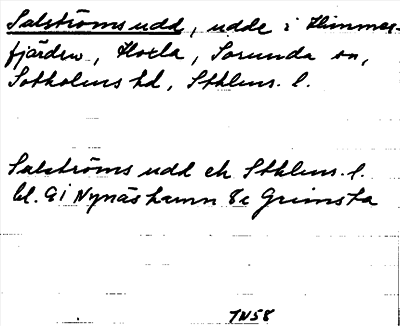 Salströms udd, udde i Himmer-
fjärden, Hoxla, Sorunda sn,
Sotholms hd, Sthlms. l.
Salströms udd ek Sthlms. l.
bl. 9i Nynäshamn 8c Grimsta
1N58